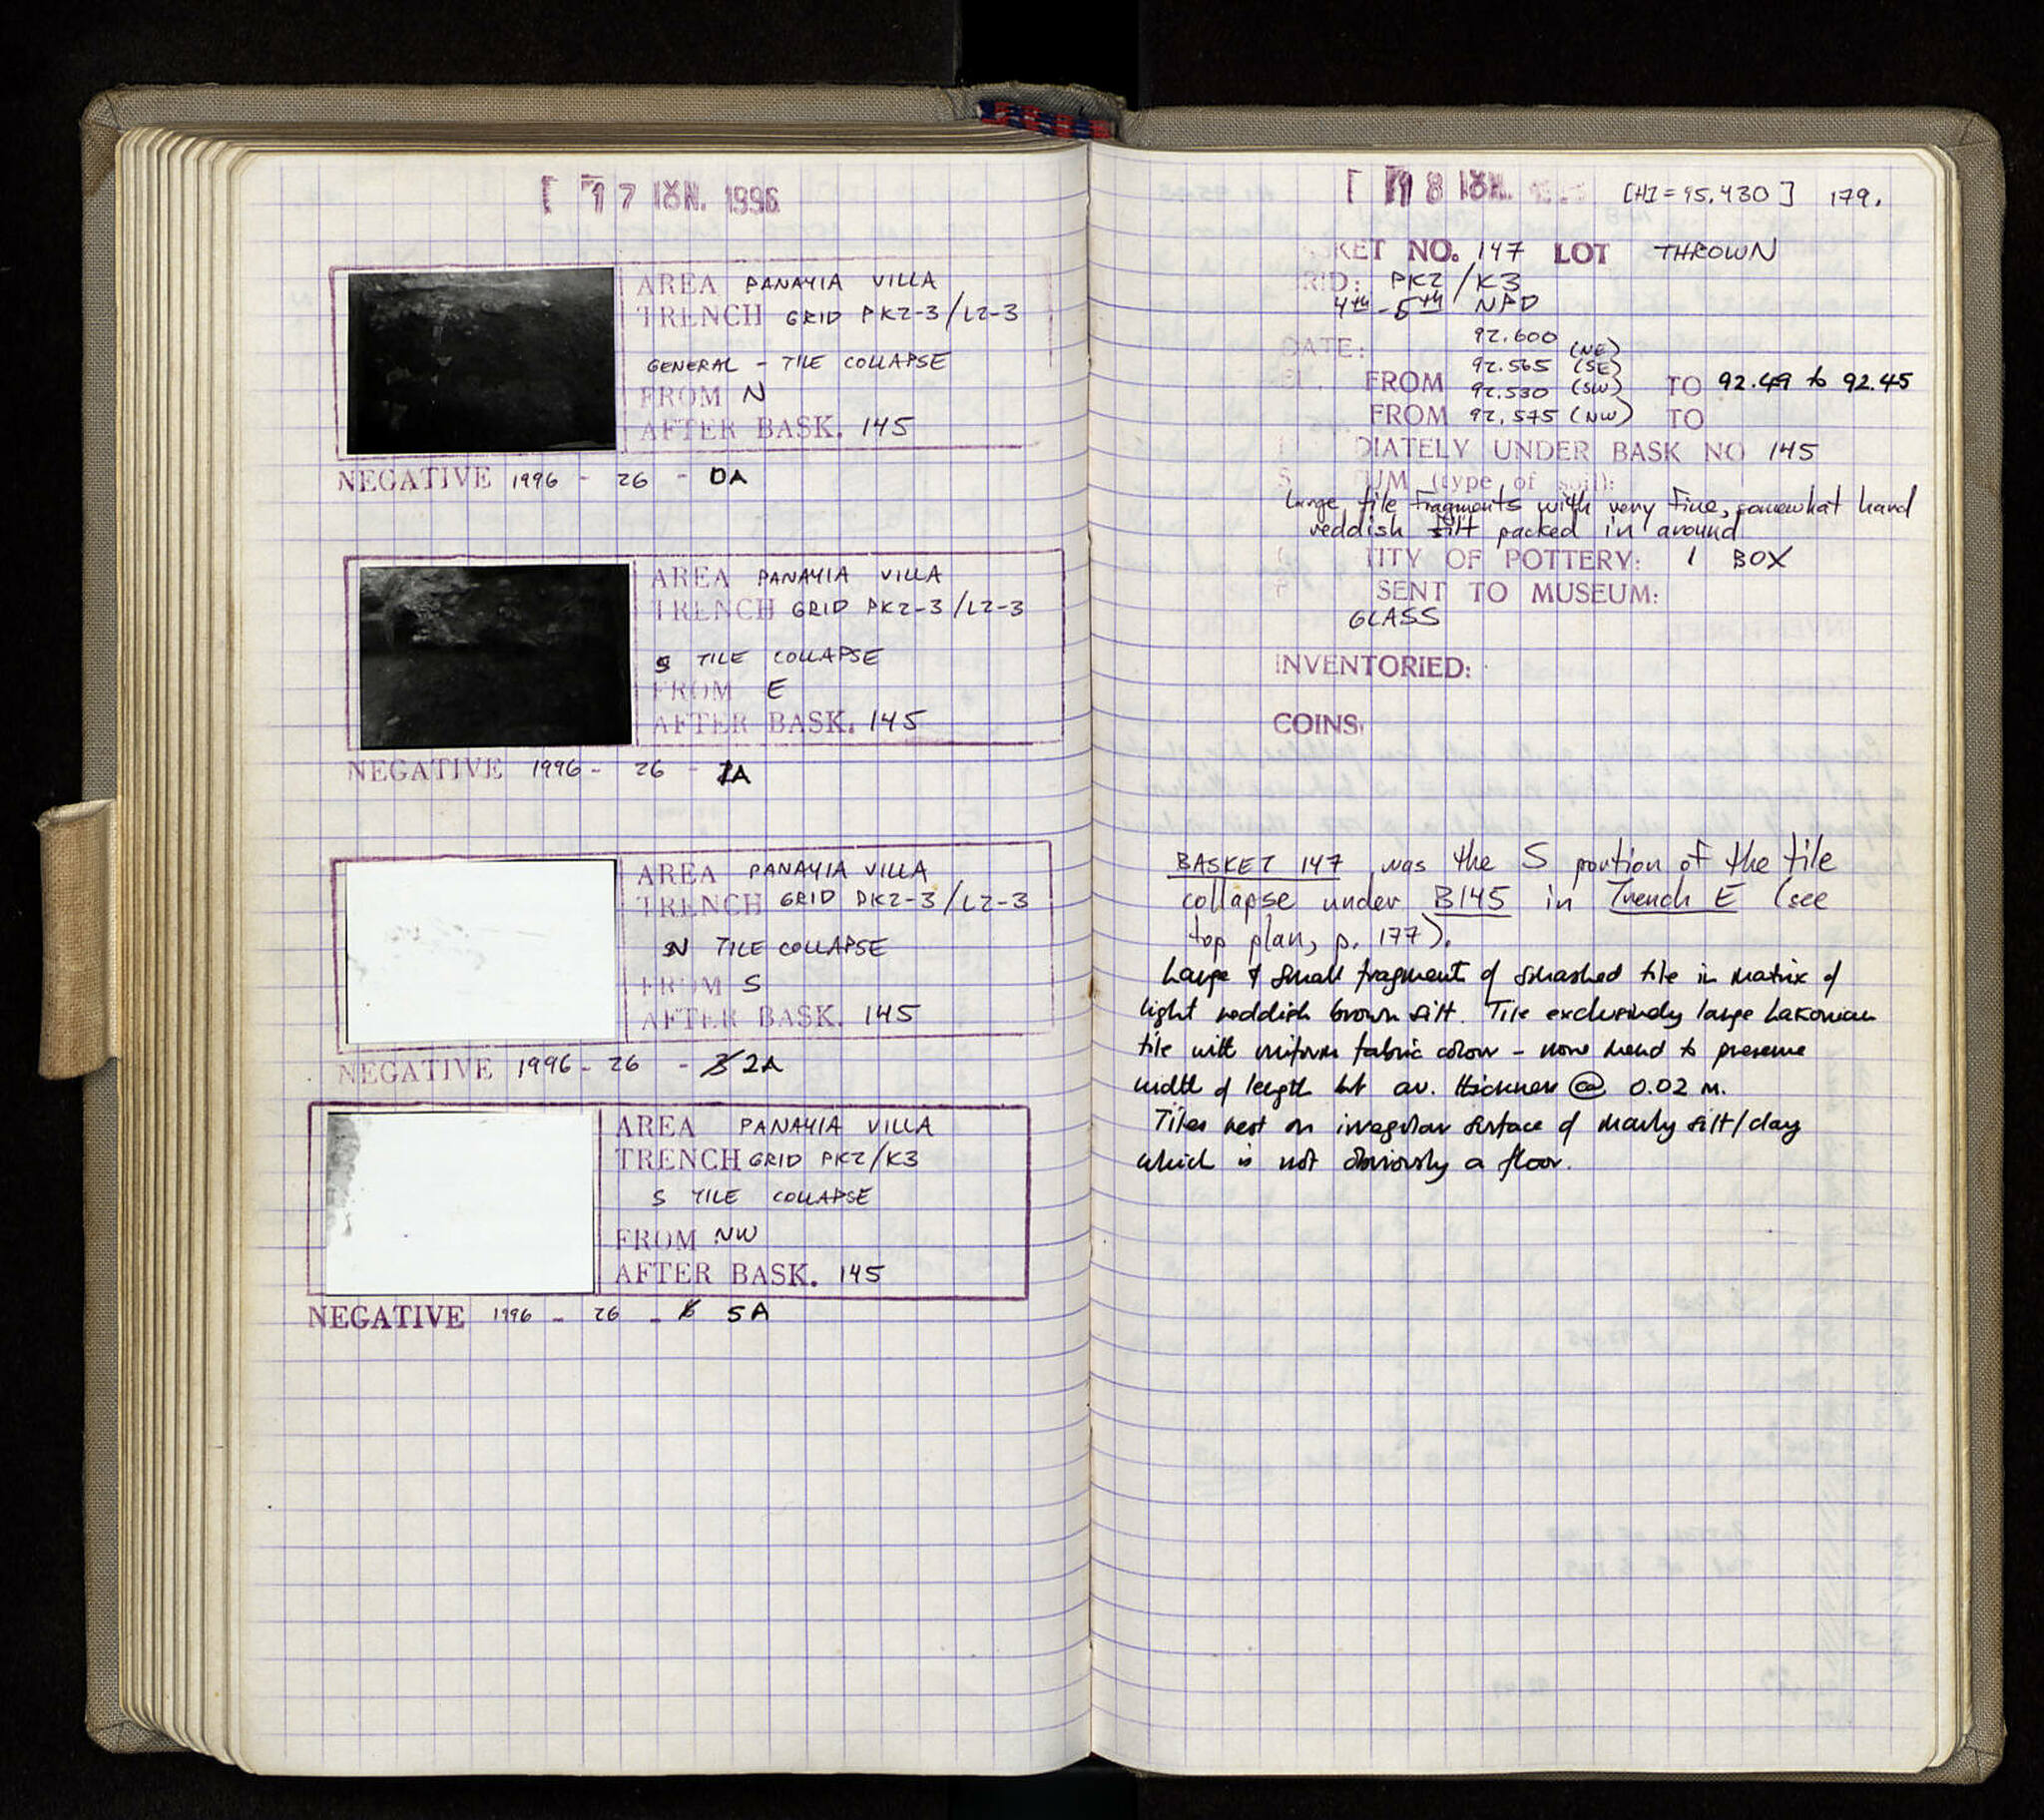 [ 17 ΙΟΥΝ. 1996
AREA PANAYIA VILLA
TRENCH GRID PK2-3/L2-3
GENERAL - TILE COLLAPSE
FROM N
AFTER BASK. 145
NEGATIVE 1996 - 26 - 0A
AREA PANAYIA VILLA
TRENCH GRID PK2-3/L2-3
S TILE COLLAPSE
FROM E
AFTER BASK. 145
NEGATIVE 1996 - 26 - 1A
AREA PANAYIA VILLA
TRENCH GRID PK2-3/L2-3
N TILE COLLAPSE
FROM S
AFTER BASK. 145
NEGATIVE 1996 - 26 - 2A
AREA PANAYIA VILLA
TRENCH GRID PK2/K3
S TILE COLLAPSE
FROM NW
AFTER BASK. 145
NEGATIVE 1996 - 26 - 5A
[ 18 ΙΟΥΝ. [HI = 95.430] 179.
KET NO. 147 LOT THROWN
RID: PK2/K3
4th-5th NPD
92.600 (NE)
DATE:
92.565 (SE)
EL. FROM 92.530 (SW) TO 92.49 to 92.45
FROM 92.575 (NW) TO
DIATELY UNDER BASK NO 145
S UM (type of soil):
Large tile fragments with very fine, somewhat hard
reddish silt packed in around
TITY OF POTTERY: 1 BOX
SENT TO MUSEUM:
GLASS
INVENTORIED:
COINS:
BASKET 147 was the S portion of the tile
collapse under B145 in Trench E (see
top plan, p. 177).
Large & small fragment of smashed tile in matrix of
light reddish brown silt. Tile exclusively large Lakonian
tile with uniform fabric colour - none found to preserve
width of length but av. thickness @ 0.02 m.
Tiles rest on irregular surface of marly silt/clay
which is not obviously a floor.